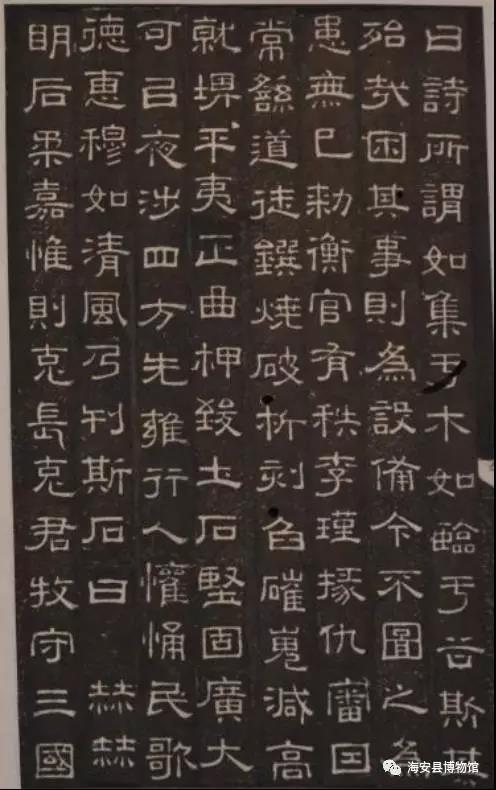 曰詩所謂如集于木如臨于谷斯其
殆哉困其事則為設備今不圖之為
愚無已勑衡官有秩李瑾掾仇審因
常繇道徒鐉燒破析刻臽磪嵬減高
就埤平夷正曲柙致土石堅固廣大
可以夜涉四方无雍行人懽悀民歌
德惠穆如清風乃刊斯石曰 赫赫
明后柔嘉惟則克長克君牧守三國
海安县博物馆